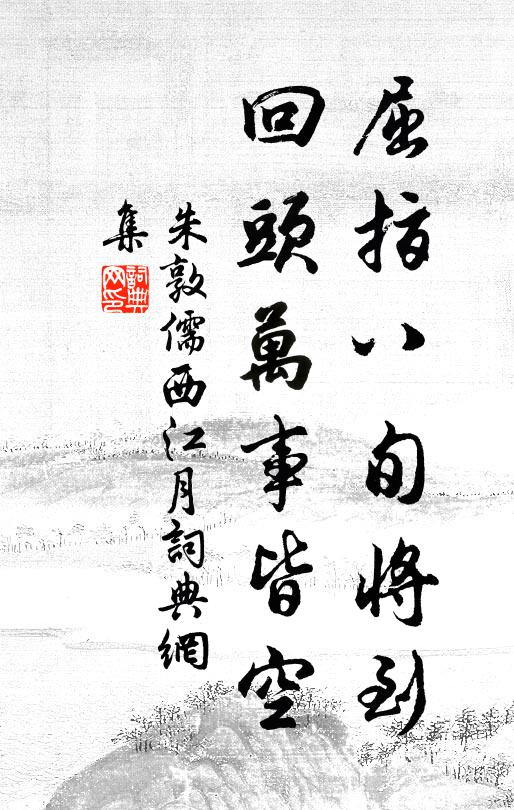 屈指八旬將到
回頭萬事皆空
朱敦儒西江月詞典網
集
詞典网印